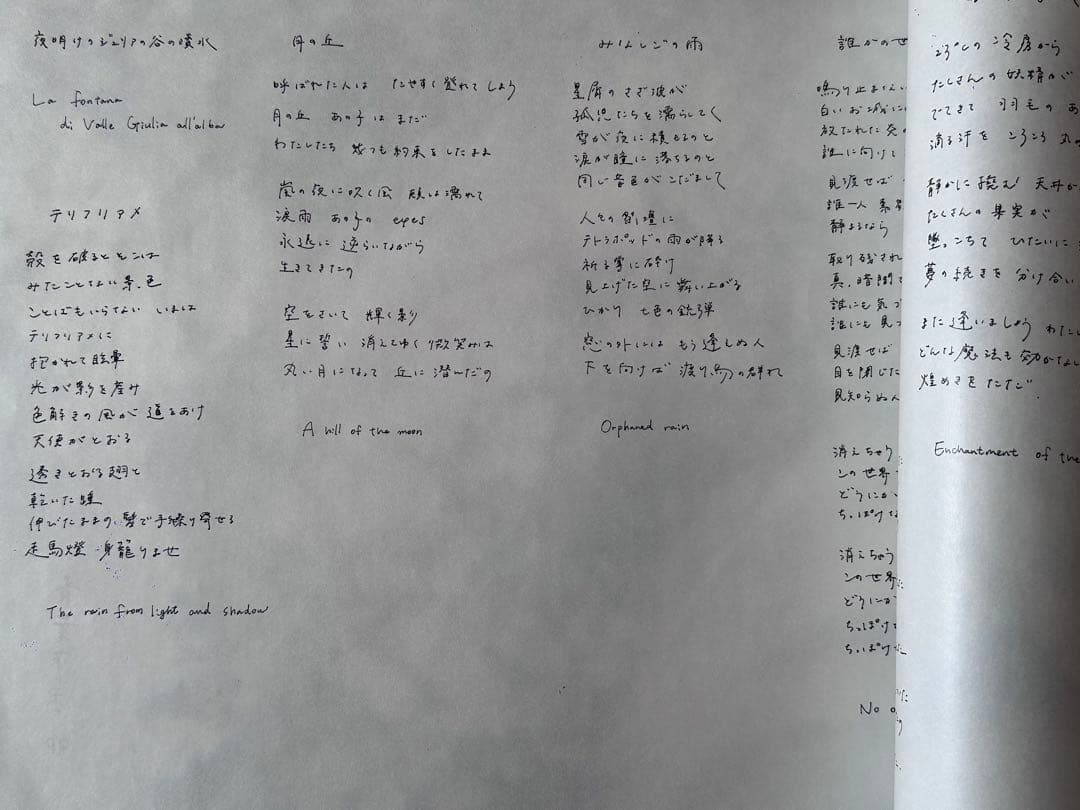 夜明けのジュリアの谷の噴水
La fontana
di Valle Giulia all'alba
テリフリアメ
殻を破るとそこは
みたことない景色
ことばもいらない いまは
テリフリアメに
抱かれて眩暈
光が影を産み
色解きの風が道をあけ
天使がとおる
透きとおる翅と
乾いた瞳
伸びたままの髪で手繰り寄せる
走馬燈 身籠りませ
The rain from light and shadow
月の丘
呼ばれた人は たやすく登れてしまう
月の丘 あの子はまだ
わたしたち 幾つも約束をしたまま
嵐の夜に吹く風 頬は濡れて
涙雨 あの子の eyes
永遠に 逆らいながら
生きてきたの
空をさいて 輝く影
星に誓い 消えてゆく微笑みは
丸い月になって 丘に潜んだの
A hill of the moon
みなしごの雨
星屑のさざ波が
孤児たちを濡らしてく
雪が夜に積もるのと
涙が瞳に落ちるのと
同じ音色がこだまして
人々の 壇に
テトラポッドの雨が降る
祈る掌に砕け
見上げた空に舞い上がる
ひかり 七色の銃弾
窓の外には もう逢えぬ人
下を向けば 渡り鳥の群れ
Orphaned rain
誰かのせ
鳴り止まない
白いお城に
放たれた
誰に向けて
見渡せば
誰一人
静まるなら
取り残され
真っ暗闇で
誰にも気づ
誰にも見つ
見渡せば
目を閉じた
見知らぬ人
消えちゃう
この世界
どうにか
ちっぽけな
消えちゃう
この世界
どうにか
ちっぽけ
ちっぽけ
No
の冷房から
たくさんの妖精が
でてきて 羽毛のあ
滴る汗を ころころ 丸め
静かに 天井か
たくさんの果実が
墜っこちて ひたいに
夢の続きを 分け合い
また逢いましょう わたし
どんな魔法も効かない
煌めきをただ
Enchantment of the